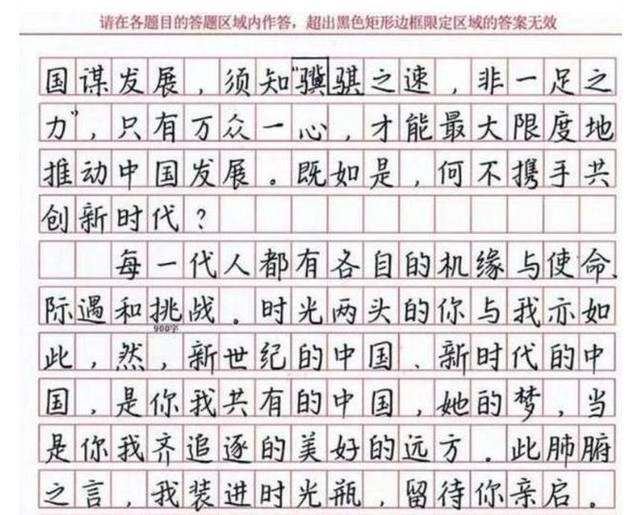 请在各题目的答题区域内作答，超出黑色矩形边框限定区域的答案无效
国谋发展，须知“骥骐之速，非一足之
力”，只有万众一心，才能最大限度地
推动中国发展。既如是，何不携手共
创新时代？
每一代人都有各自的机缘与使命、
际遇和挑战。时光两头的你与我亦如
900字
此，然，新世纪的中国、新时代的中
国，是你我共有的中国，她的梦，当
是你我齐追逐的美好的远方。此肺腑
之言，我装进时光瓶，留待你亲启。